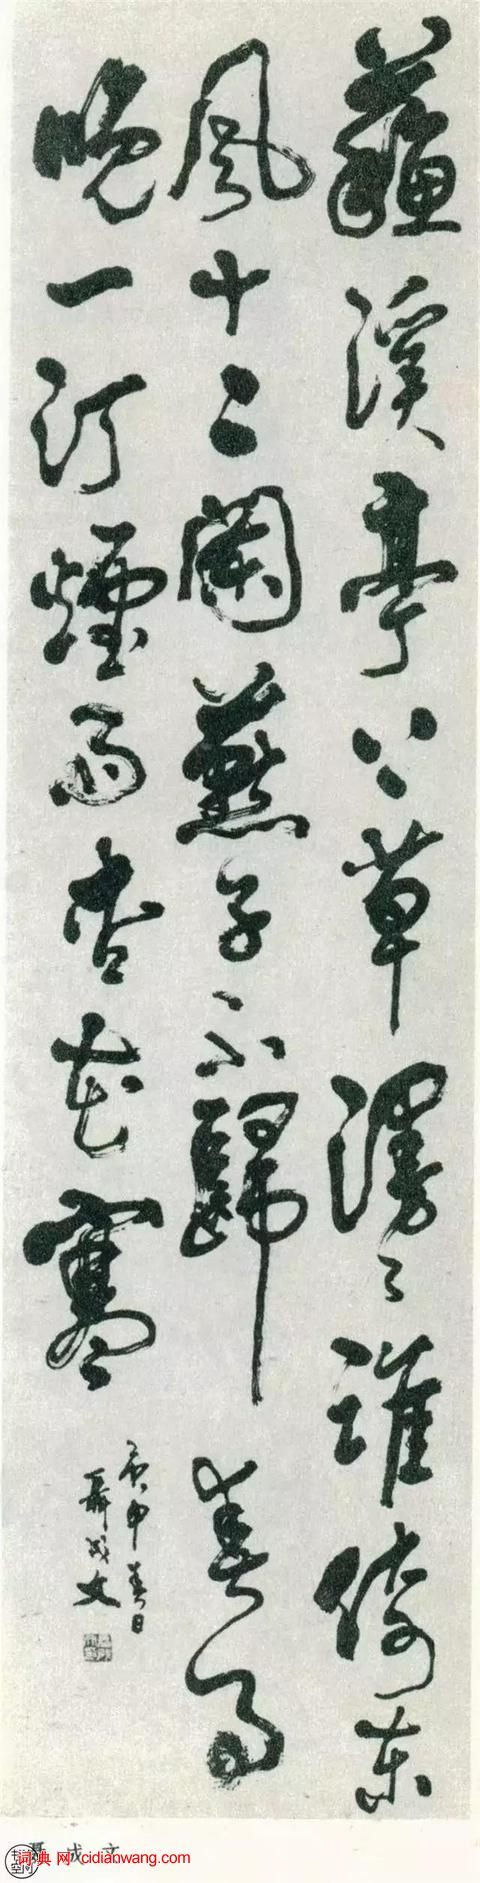 蘇溪亭上草漫々誰倚東
風十二闌燕子不歸春事
晚一汀煙雨杏花寒
庚申春日
聶成文
成文
词典网:cidianwang.com